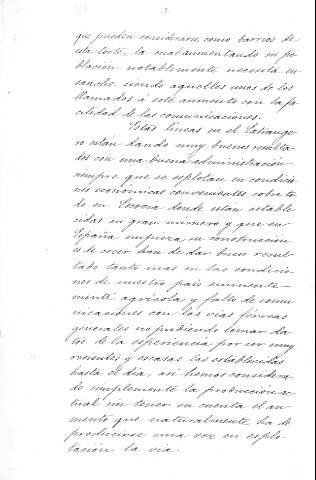 7.
que pueden considerarse como barrios de
esta Corte, la cual aumentando su po-
blación notablemente necesita en-
sanche siendo aquellos unos de los
llamados á este aumento con la fa-
cilidad de las comunicaciones.
Estas lineas en el Estrange-
ro están dando muy buenos resulta-
dos con una buena administración
siempre que se esplotan en condicio-
nes económicas convenientes sobre to-
do en Escocia donde están estable-
cidas en gran número y que en
España empieza su construcción
es de creer han de dar buen resul-
tado tanto mas en las condicio-
nes de nuestro pais eminente-
mente agrícola y falto de comu-
nicaciones con las vias férreas
generales no pudiendo tomar da-
tos de la esperiencia por ser muy
recientes y escasas las establecidas
hasta el dia, asi hemos considera-
do simplemente la producción ac-
tual sin tener en cuenta el au-
mento que naturalmente ha de
producirse una vez en esplo-
tación la via.